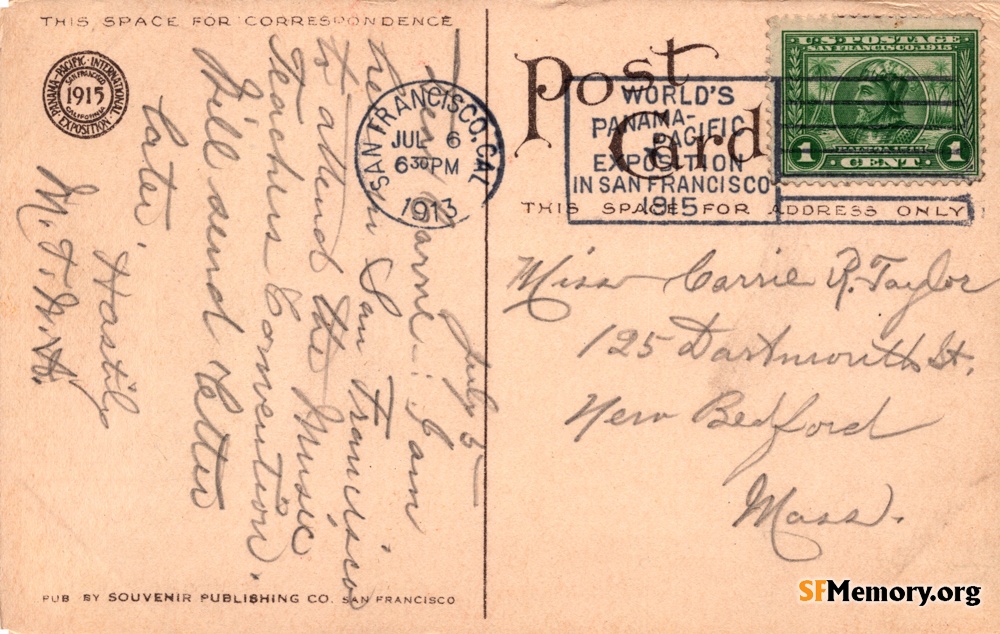 THIS SPACE FOR CORRESPONDENCE
PANAMA-PACIFIC INTERNATIONAL EXPOSITION
SAN FRANCISCO
1915
CALIFORNIA
July 5
Dear Carrie: I am
here in San Francisco
to attend the Music
Teachers Convention.
Will send letter
later.
Hastily
PUB BY SOUVENIR PUBLISHING CO. SAN FRANCISCO
Post Card
SAN FRANCISCO, CAL
JUL 6
6 30 PM
1913
WORLD'S
PANAMA-
PACIFIC
EXPOSITION
IN SAN FRANCISCO
1915
U.S. POSTAGE
SAN FRANCISCO, 1915
1 CENT 1
THIS SPACE FOR ADDRESS ONLY
Miss Carrie R. Taylor
125 Dartmouth St.
New Bedford
Mass.
SFMemory.org